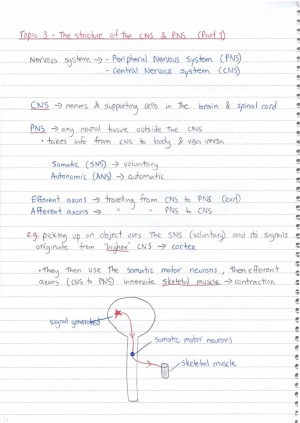 Topic 3 - The structure of the CNS & PNS (Part 1)
Nervous system → - Peripheral Nervous System (PNS)
- Central Nervous System (CNS)
CNS → nerves & supporting cells in the brain & spinal cord
PNS → any neural tissue outside the CNS
• takes info from CNS to body & visa versa
Somatic (SNS) → voluntary
Autonomic (ANS) → automatic
Efferent axons → travelling from CNS to PNS (exit)
Afferent axons → " " PNS to CNS
e.g. picking up an object uses the SNS (voluntary) and its signals
originate from "higher" CNS → cortex
• they then use the somatic motor neurons, then efferent
axons (CNS to PNS) innervate skeletal muscle → contraction
signal generated
somatic motor neurons
skeletal muscle